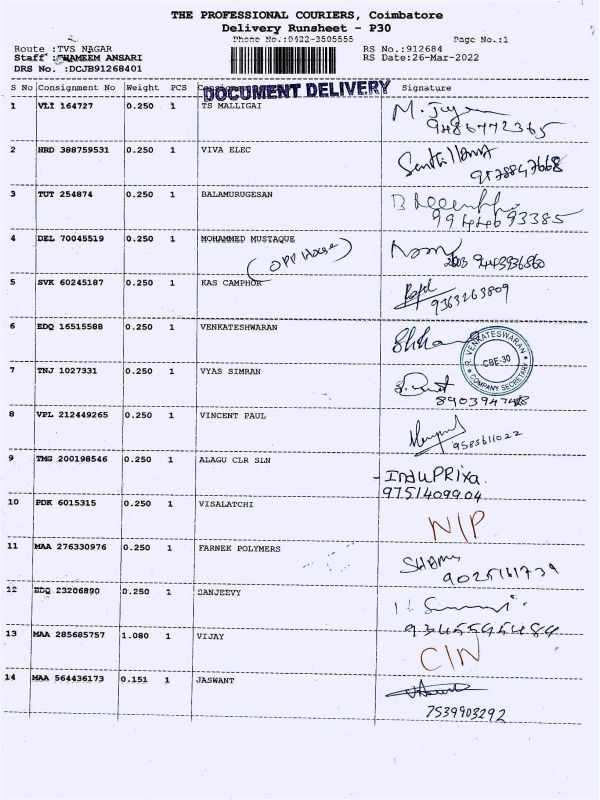 THE PROFESSIONAL COURIERS, Coimbatore
Delivery Runsheet - P30
Phone No.:0422-3505555 Page No.:1
Route :TVS NAGAR RS No.:912684
Staff :THAMEEM ANSARI RS Date:26-Mar-2022
DRS No. :DCJB91268401
S No Consignment No Weight PCS Consignee Signature
DOCUMENT DELIVERY
1 VLI 164727 0.250 1 TS MALLIGAI
9486772365
2 HRD 388759531 0.250 1 VIVA ELEC
3 TUT 254874 0.250 1 BALAMURUGESAN
9944693385
4 DEL 70045519 0.250 1 MOHAMMED MUSTAQUE
(OPP House)
5 SVK 60245187 0.250 1 KAS CAMPHOR
9363263809
6 EDQ 16515588 0.250 1 VENKATESHWARAN
R. VENKATESWARAN
CBE-30
* COMPANY SECRETARY *
7 TNJ 1027331 0.250 1 VYAS SIMRAN
8 VPL 212449265 0.250 1 VINCENT PAUL
9585611022
9 TMG 200198546 0.250 1 ALAGU CLR SLN
InduPRiya
9751409904
10 PDK 6015315 0.250 1 VISALATCHI
N/P
11 MAA 276330976 0.250 1 FARNEK POLYMERS
9025161739
12 EDQ 23206890 0.250 1 SANJEEVY
13 MAA 285685757 1.080 1 VIJAY
C/N
14 MAA 564436173 0.151 1 JASWANT
7539903292